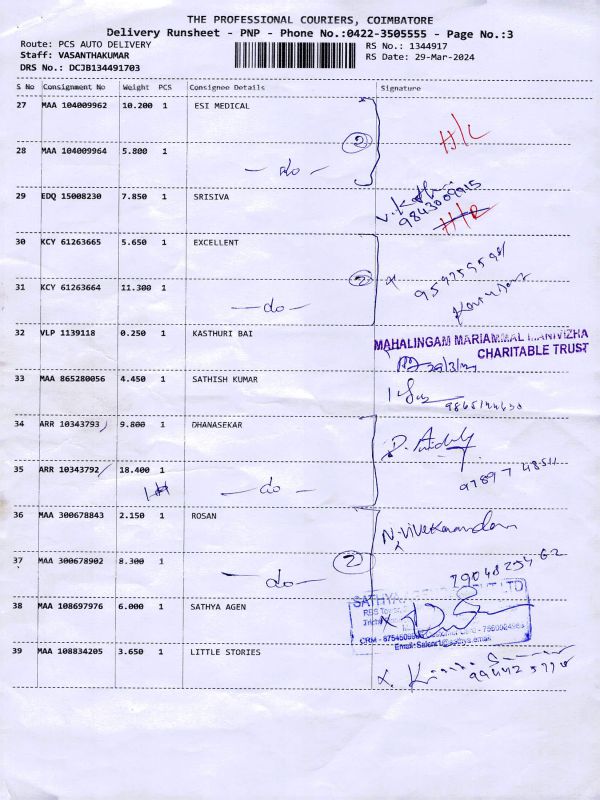 THE PROFESSIONAL COURIERS, COIMBATORE
Delivery Runsheet - PNP - Phone No.:0422-3505555 - Page No.:3
Route: PCS AUTO DELIVERY RS No.: 1344917
Staff: VASANTHAKUMAR RS Date: 29-Mar-2024
DRS No.: DCJB134491703
S No Consignment No Weight PCS Consignee Details Signature
27 MAA 104009962 10.200 1 ESI MEDICAL
2 H/L
28 MAA 104009964 5.800 1
- do -
29 EDQ 15008230 7.850 1 SRISIVA
9843009915
30 KCY 61263665 5.650 1 EXCELLENT
2
31 KCY 61263664 11.300 1
- do -
32 VLP 1139118 0.250 1 KASTHURI BAI
MAHALINGAM MARIAMMAL MANIVIZHA
CHARITABLE TRUST
33 MAA 865280056 4.450 1 SATHISH KUMAR
34 ARR 10343793 9.800 1 DHANASEKAR
35 ARR 10343792 18.400 1
- do -
97897 48511
36 MAA 300678843 2.150 1 ROSAN
N. Vivekanandan
37 MAA 300678902 8.300 1 2
- do -
7904825462
38 MAA 108697976 6.000 1 SATHYA AGEN
SATHYA
39 MAA 108834205 3.650 1 LITTLE STORIES